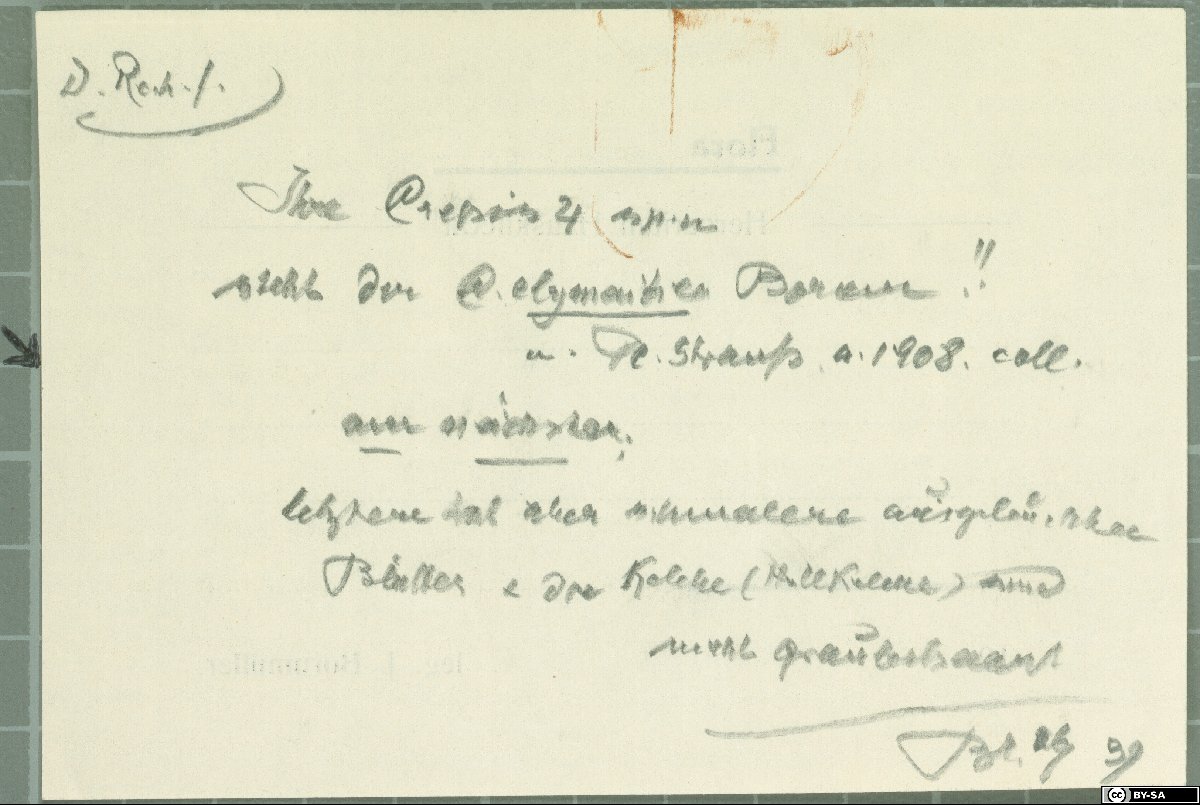 D. Rech. f.
Ihre Crepis 4 spn
steht der C. elymaitica Bornm !!
u. Th. Strauß a. 1908. coll.
am nächsten;
letztere hat aber schmalere
Blätter & die Kelche (Hüllkelche) sind
nicht graubehaart
Flora
leg. J. Bornmüller.
BY-SA